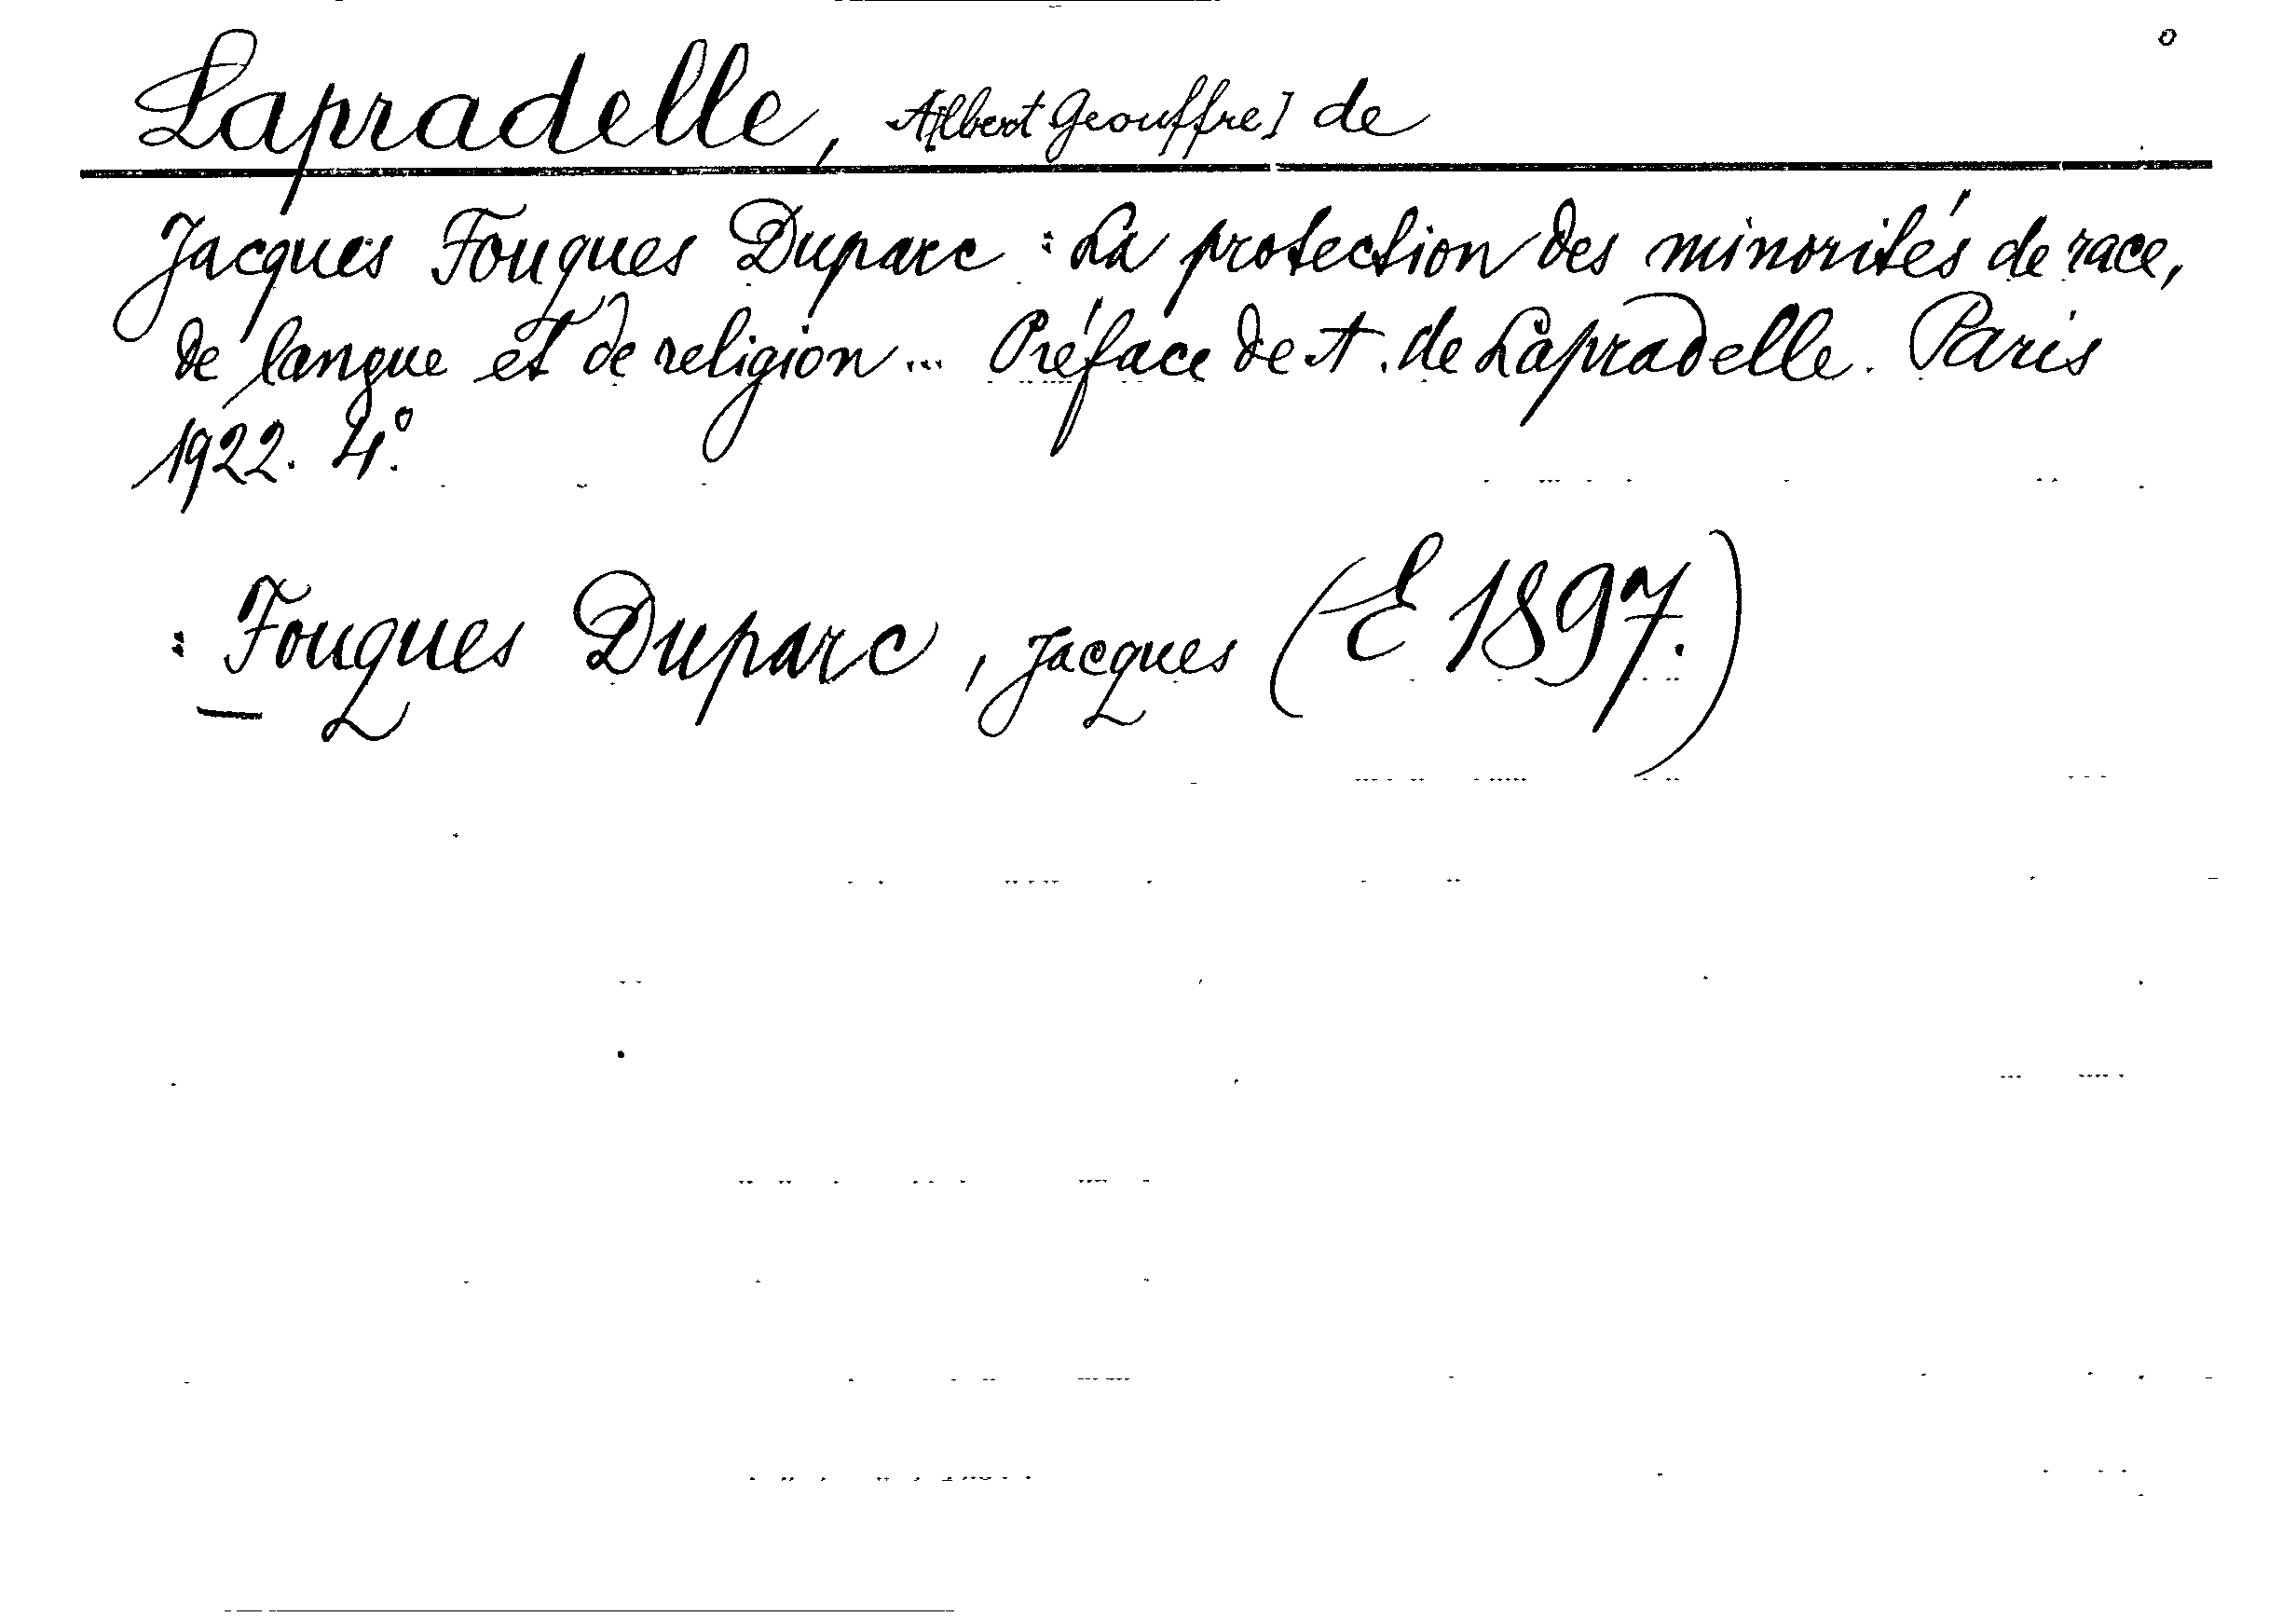 Lapradelle, A[lbert Geouffre] de
Jacques Fouques Duparc : La protection des minorités de race,
de langue et de religion... Préface de A. de Lapradelle. Paris
1922. 4°.
: Fouques Duparc, Jacques (E 1897.)